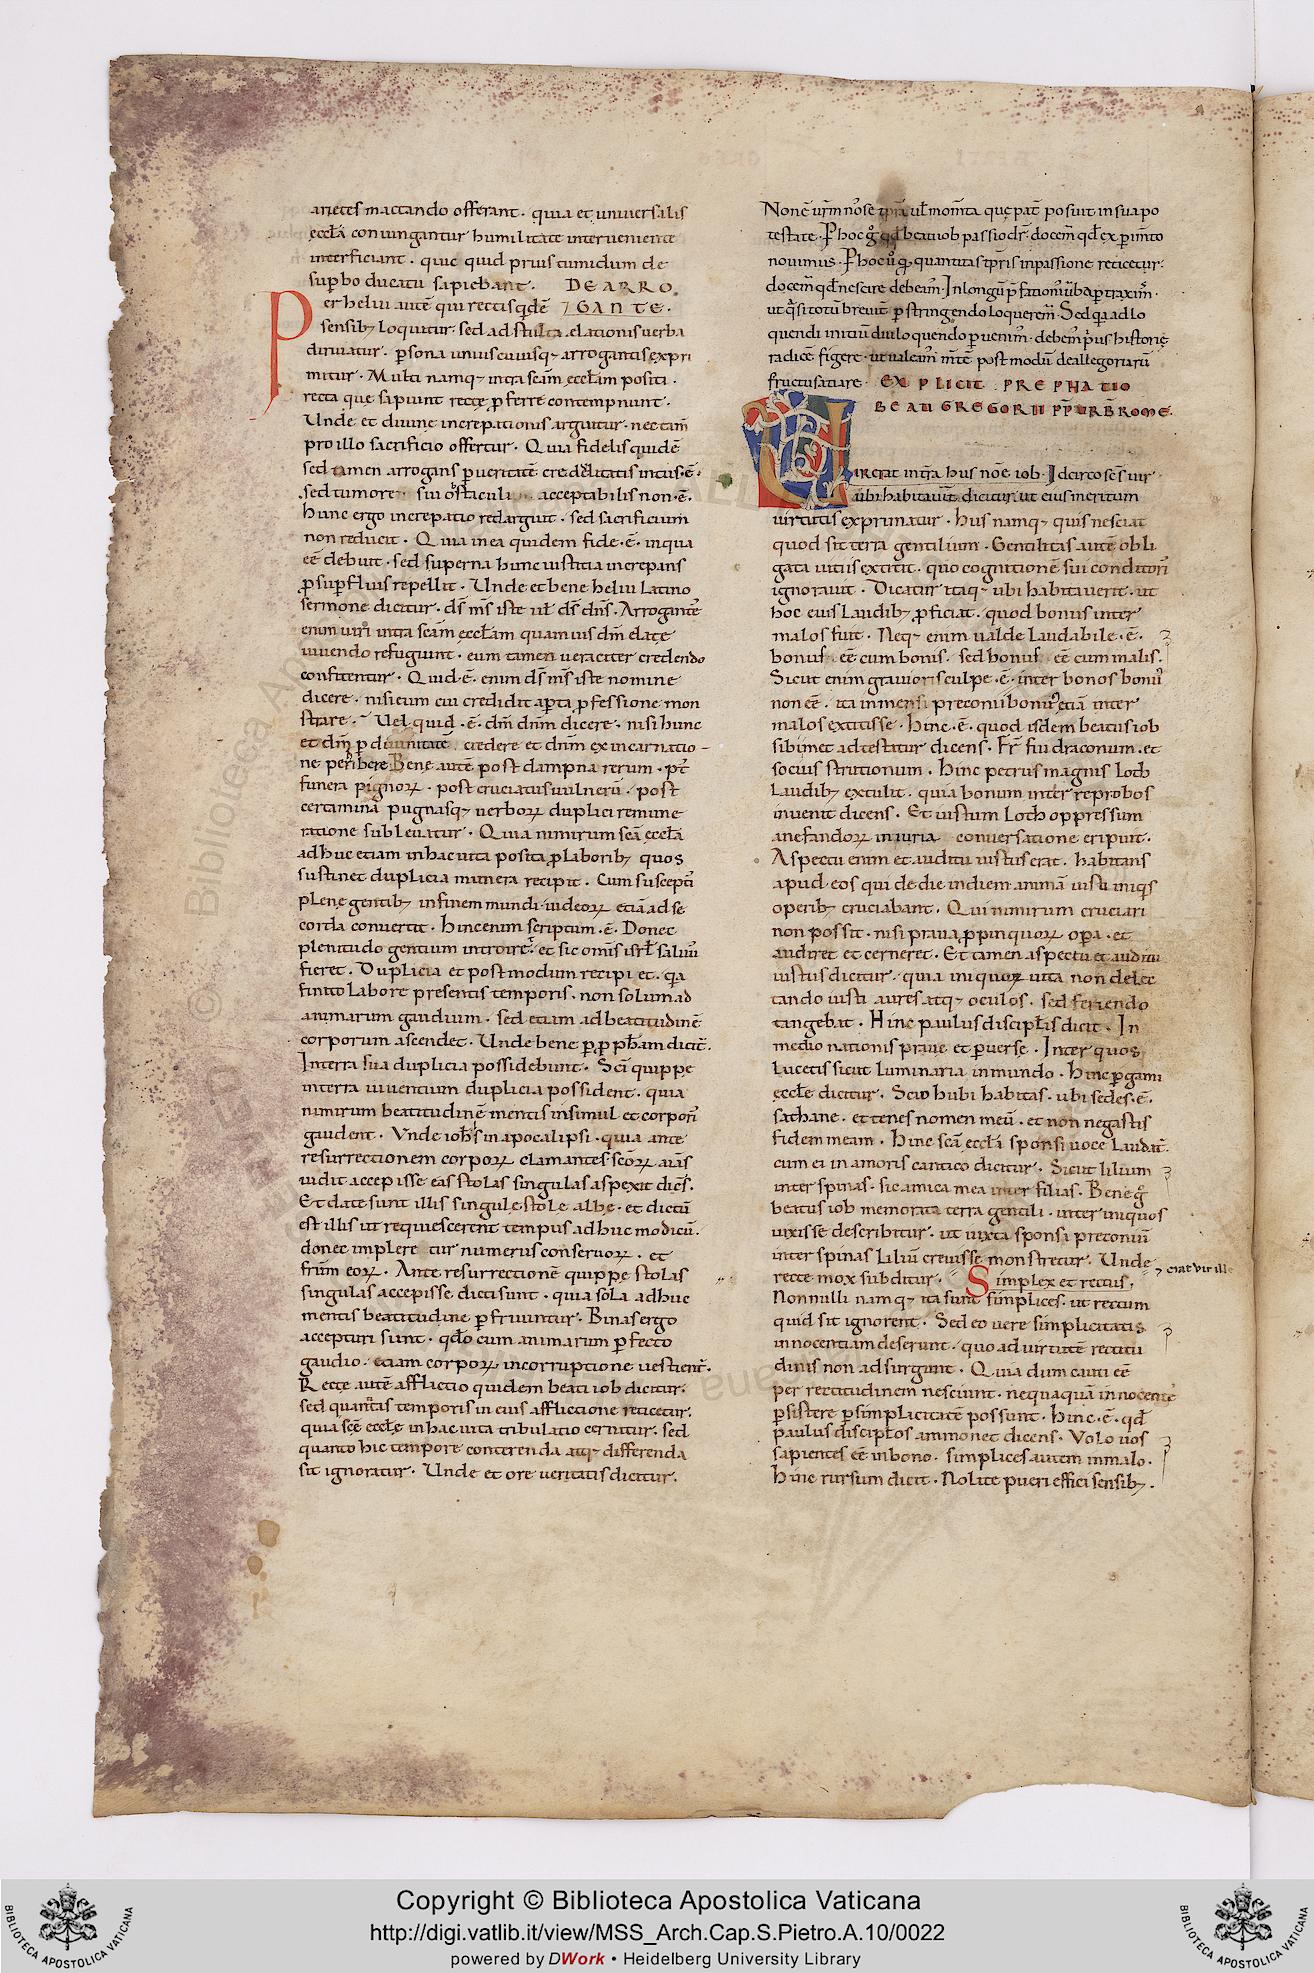 arietes mactando offerant · quia et universalis
ęcctā coniungantur humilitate interveniente
interficiant · quic quid prius tumidum de
sup̄bo ducatu sapiebant · DE ARRO
P er heliu autē qui rectis q̄dē GANTE ·
sensib; loquitur · sed ad stulta elationis verba
dirivatur · p̄sona unius cuiusq; arrogantis expri
mitur · Multi namq; intra scām ęccłam positi ·
recta que sapiunt recte p̄ferre contempnunt ·
Unde et divinę increpationis arguitur · nec tam̄
pro illo sacrificio offertur · Quia fidelis quidē
sed tamen arrogans p̄ veritatē credulitatis intus · ē ·
sed tumore sui obstaculi acceptabilis non · ē ·
Hunc ergo increpatio redarguit · sed sacrificium
non reducit · Quia in ea quidem fide · ē · in qua
eē debuit · sed superna hunc iustitia increpans
p̄ sup̄fluis repellit · Unde et bene heliu latino
sermone dicitur · d̄s m̄s iste vł d̄s dn̄s · Arrogantē
enim viri intra scām ęccłam quamvis dm̄ elate
vivendo refugiunt · eum tamen veraciter credendo
confitentur · Quid · ē · enim d̄s m̄s iste nomine
dicere · nisi eum cui credidit ap̄ta p̄fessione mon
strare · Vel quid · ē · dm̄ dnm̄ dicere · nisi hunc
et dm̄ p̄ divinitatē credere et dnm̄ ex incarnatio -
ne perhibere Bene autē post dampna rerum · p̄t
funera pignorꝝ · post cruciatus vulnerū · post
certamina pugnasq; verborꝝ duplici remune
ratione sublevatur · Quia nimirum scā ęccłā
adhuc etiam in hac vita posita p̄ laborib; quos
sustinet duplicia munera recipit · Cum susceptī
plene gentib; in finem mundi iudeorꝝ etiā ad se
corda convertit · Hinc enim scriptum · ē · Donec
plenitudo gentium introirēt · et sic omīs isrł salvū
fieret · Duplicia et postmodum recipi et · q̄a
finito labore presentis temporis · non solum ad
animarum gaudium · sed etiam ad beatitudinē
corporum ascendet · Unde bene p̄ p̄ phām dicit̄ ·
In terra sua duplicia possidebunt · Scī quippe
in terra viventium duplicia possident · quia
nimirum beatitudinē mentis insimul et corporī
gaudent · Vnde iohs̄ in apocalipsi · quia ante
resurrectionem corporꝝ clamantes scōrꝝ aīas
vidit accepisse eas stolas singulas aspexit dicēs ·
Et date sunt illis singule stole albę · et dictū
est illis ut requiescerent tempus adhuc modicū ·
donec implere tur numerus conservorꝝ · et
frūm eorꝝ · Ante resurrectionē quippe stolas
singulas accepisse dicti sunt · quia sola adhuc
mentis beatitudine p̄fruuntur · Binas ergo
accepturi sunt · qdo cum animarum p̄fecto
gaudio · etiam corporꝝ incorruptione vestient̄ ·
Recte autē afflictio quidem beati iob dicitur ·
sed quantitas temporis in eius afflictione reticetur ·
quia scē ęccłe in hac vita tribulatio cernitur · sed
quanto hic tempore conterenda atq; differenda
sit ignoratur · Unde et ore veritatis dicitur ·
Non ē vr̄m nose tp̄ra vł mom̄ta quę pat̄ posuit in sua po
testate · P hoc g̊ qd̄ beati iob passio dr̄ · docem̄ qd̄ exp̄im̄to
novimus · P hoc v̊ q̄ quantitas tp̄ris in passione reticetur ·
docem̄ qd̄ nescire debeam̄ · In longū p̄fationis v̄ba p̄traxim̄ ·
ut q̄si totū brevit̄ p̄stringendo loquerem̄ · Sed q̄a ad lo
quendi initiū diu loquendo p̄venim̄ · debem̄ p̄us historię
radicē figere · ut valeam̄ m̄tē postmodū de allegoriarū
fructu satiare · EXPLICIT PREPHATIO
BEATI GREGORII PP̄ URB̄ ROME ·
VIR erat in tr̄a hus noē iob · Idcirco scs̄ vir
ubi habitavit̄ dicitur ut eius meritum
virtutis exprimatur · Hus namq; quis nesciat
quod sit terra gentilium · Gentilitas autē obli
gata vitiis extitit · quo cognitionē sui conditorī
ignoravit · Dicatur itaq; ubi habitaverit · ut
hoc eius laudib; p̄ficiat · quod bonus inter
malos fuit · Neq; enim valde laudabile · ē ·
bonus · eē cum bonis · sed bonus eē cum malis ·
Sicut enim gravioris culpe · ē · inter bonos bonū
non eē · ita inmensi preconii bonū etiā inter
malos extitisse · Hinc · ē · quod isdem beatus iob
sibimet adtestatur dicens · Fr̄ fui draconum · et
socius strutionum · Hinc petrus magnis loth
laudib; extulit · quia bonum inter reprobos
invenit dicens · Et iustum Loth oppressum
anefandorꝝ iniuria conversatione eripuit ·
Aspectu enim et auditu iustus erat · habitans
apud eos qui de die in diem animā iusti iniq̄s
operib; cruciabant · Qui nimirum cruciari
non possit · nisi prava p̄pinquorꝝ op̄a · et
audiret et cerneret · Et tamen aspectu et auditu
iustus dicitur · quia iniquoꝝ vita non delec
tando iusti aures atq; oculos · sed feriendo
tangebat · Hinc paulus discipłis dicit · In
medio nationis prave et p̄verse · Inter quos
lucetis sicut luminaria in mundo · Hinc p̄gami
ęccłe dicitur · Scio hubi habitas · ubi sedes · ē ·
sathane · et tenes nomen meū · et non negastis
fidem meam · Hinc scā ęccłā sponsi voce laudat̄ ·
cum ei in amoris cantico dicitur · Sicut lilium
inter spinas · sic amica mea inter filias · Bene g̊
beatus iob memorata terra gentili · inter iniquos
vixisse describitur · ut iuxta sponsi preconiū
inter spinas liliū crevisse monstretur · Unde
recte mox subditur · Simplex et rectus ·
erat vir ille
Nonnulli namq; ita sunt simplices · ut rectum
quid sit ignorent · Sed eo vere simplicitatis
innocentiam deserunt · quo ad virtutē rectitu
dinis non adsurgunt · Quia dum cauti eē
per rectitudinem nesciunt · nequaquā innocentē
p̄sistere p̄ simplicitatē possunt · Hinc · ē · qd̄
paulus discipłos ammonet dicens · Volo vos
sapientes eē in bono · simplices autem in malo ·
Hinc rursum dicit · Nolite pueri effici sensib; ·
Copyright © Biblioteca Apostolica Vaticana
http://digi.vatlib.it/view/MSS_Arch.Cap.S.Pietro.A.10/0022
powered by DWork • Heidelberg University Library
BIBLIOTECA APOSTOLICA VATICANA
BIBLIOTECA APOSTOLICA VATICANA